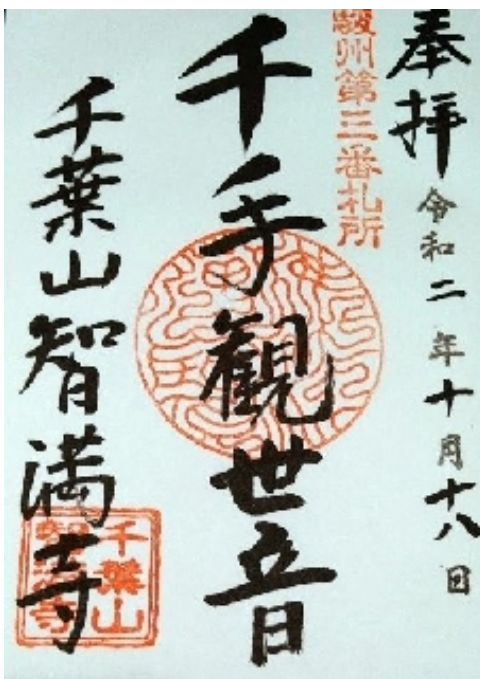 奉拝 令和二年十月十八日
駿州第三番札所
千手観世音
千葉山智満寺
千葉山
智満寺